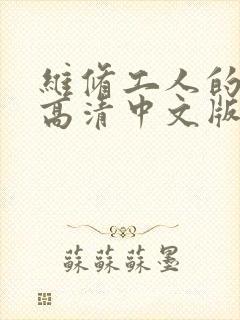 維脩工人的
高清中文版
蘇蘇蘇墨